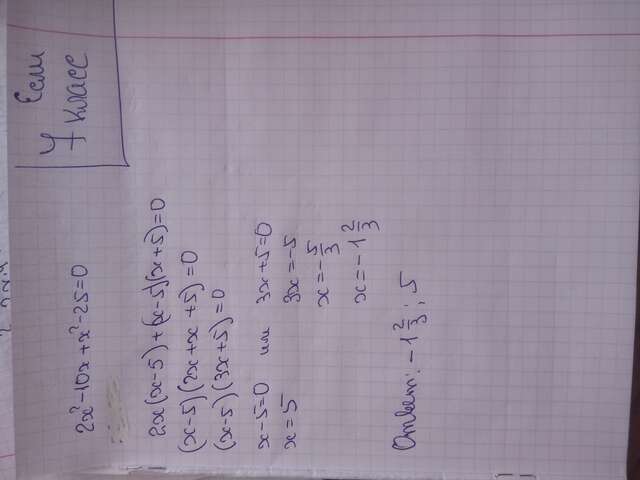 Если
7 класс
2x²-10x+x²-25=0
2x(x-5)+(x-5)(x+5)=0
(x-5)(2x+x+5)=0
(x-5)(3x+5)=0
x-5=0 или 3x+5=0
x=5 3x=-5
x=-5/3
x=-1 2/3
Ответ: -1 2/3; 5